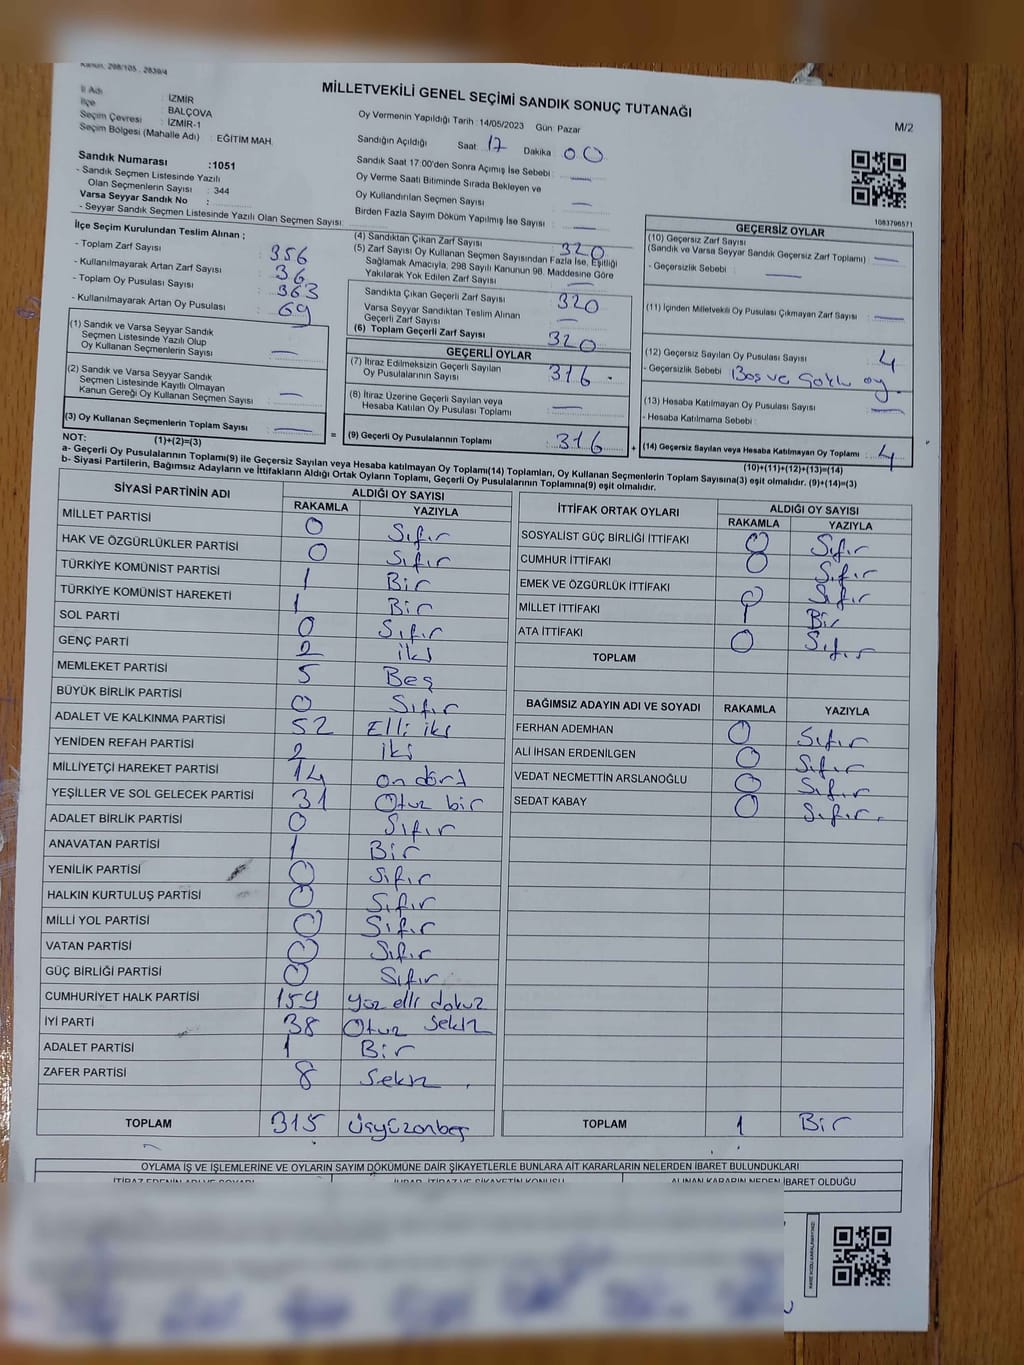 Kanun, 298/105 , 2839/4
MİLLETVEKİLİ GENEL SEÇİMİ SANDIK SONUÇ TUTANAĞI
M/2
İl Adı : İZMİR
İlçe : BALÇOVA
Seçim Çevresi : İZMİR-1
Seçim Bölgesi (Mahalle Adı) : EĞİTİM MAH.
Sandık Numarası :1051
- Sandık Seçmen Listesinde Yazılı
Olan Seçmenlerin Sayısı : 344
Varsa Seyyar Sandık No :
- Seyyar Sandık Seçmen Listesinde Yazılı Olan Seçmen Sayısı:
Oy Vermenin Yapıldığı Tarih :14/05/2023 Gün Pazar
Sandığın Açıldığı Saat : 17 Dakika : 00
Sandık Saat 17:00'den Sonra Açımış İse Sebebi : —
Oy Verme Saati Bitiminde Sırada Bekleyen ve
Oy Kullandırılan Seçmen Sayısı : —
Birden Fazla Sayım Döküm Yapılmış İse Sayısı : —
1083796571
İlçe Seçim Kurulundan Teslim Alınan ;
- Toplam Zarf Sayısı : 356
- Kullanılmayarak Artan Zarf Sayısı : 36
- Toplam Oy Pusulası Sayısı : 363
- Kullanılmayarak Artan Oy Pusulası : 69
(1) Sandık ve Varsa Seyyar Sandık
Seçmen Listesinde Yazılı Olup
Oy Kullanan Seçmenlerin Sayısı : —
(2) Sandık ve Varsa Seyyar Sandık
Seçmen Listesinde Kayıtlı Olmayan
Kanun Gereği Oy Kullanan Seçmen Sayısı : —
(3) Oy Kullanan Seçmenlerin Toplam Sayısı : —
(1)+(2)=(3)
(4) Sandıktan Çıkan Zarf Sayısı : 320
(5) Zarf Sayısı Oy Kullanan Seçmen Sayısından Fazla İse, Eşitliği
Sağlamak Amacıyla, 298 Sayılı Kanunun 98. Maddesine Göre
Yakılarak Yok Edilen Zarf Sayısı : —
Sandıkta Çıkan Geçerli Zarf Sayısı : 320
Varsa Seyyar Sandıktan Teslim Alınan
Geçerli Zarf Sayısı : —
(6) Toplam Geçerli Zarf Sayısı : 320
GEÇERLİ OYLAR
(7) İtiraz Edilmeksizin Geçerli Sayılan
Oy Pusulalarının Sayısı : 316
(8) İtiraz Üzerine Geçerli Sayılan veya
Hesaba Katılan Oy Pusulası Toplamı : —
= (9) Geçerli Oy Pusulalarının Toplamı : 316
GEÇERSİZ OYLAR
(10) Geçersiz Zarf Sayısı
(Sandık ve Varsa Seyyar Sandık Geçersiz Zarf Toplamı) : —
- Geçersizlik Sebebi : —
(11) İçinden Milletvekili Oy Pusulası Çıkmayan Zarf Sayısı : —
(12) Geçersiz Sayılan Oy Pusulası Sayısı : 4
- Geçersizlik Sebebi : Boş ve Çoklu oy.
(13) Hesaba Katılmayan Oy Pusulası Sayısı : —
- Hesaba Katılmama Sebebi :
+ (14) Geçersiz Sayılan veya Hesaba Katılmayan Oy Toplamı : 4
(10)+(11)+(12)+(13)=(14)
NOT:
a- Geçerli Oy Pusulalarının Toplamı(9) ile Geçersiz Sayılan veya Hesaba katılmayan Oy Toplamı(14) Toplamları, Oy Kullanan Seçmenlerin Toplam Sayısına(3) eşit olmalıdır. (9)+(14)=(3)
b- Siyasi Partilerin, Bağımsız Adayların ve İttifakların Aldığı Ortak Oyların Toplamı, Geçerli Oy Pusulalarının Toplamına(9) eşit olmalıdır.
SİYASİ PARTİNİN ADI ALDIĞI OY SAYISI
RAKAMLA YAZIYLA
MİLLET PARTİSİ 0 Sıfır
HAK VE ÖZGÜRLÜKLER PARTİSİ 0 Sıfır
TÜRKİYE KOMÜNİST PARTİSİ 1 Bir
TÜRKİYE KOMÜNİST HAREKETİ 1 Bir
SOL PARTİ 0 Sıfır
GENÇ PARTİ 2 iki
MEMLEKET PARTİSİ 5 Beş
BÜYÜK BİRLİK PARTİSİ 0 Sıfır
ADALET VE KALKINMA PARTİSİ 52 Elli iki
YENİDEN REFAH PARTİSİ 2 iki
MİLLİYETÇİ HAREKET PARTİSİ 14 on dört
YEŞİLLER VE SOL GELECEK PARTİSİ 31 Otuz bir
ADALET BİRLİK PARTİSİ 0 Sıfır
ANAVATAN PARTİSİ 1 Bir
YENİLİK PARTİSİ 0 Sıfır
HALKIN KURTULUŞ PARTİSİ 0 Sıfır
MİLLİ YOL PARTİSİ 0 Sıfır
VATAN PARTİSİ 0 Sıfır
GÜÇ BİRLİĞİ PARTİSİ 0 Sıfır
CUMHURİYET HALK PARTİSİ 159 yüz elli dokuz
İYİ PARTİ 38 Otuz sekiz
ADALET PARTİSİ 1 Bir
ZAFER PARTİSİ 8 sekiz
TOPLAM 315 üçyüzonbeş
İTTİFAK ORTAK OYLARI ALDIĞI OY SAYISI
RAKAMLA YAZIYLA
SOSYALİST GÜÇ BİRLİĞİ İTTİFAKI 0 Sıfır
CUMHUR İTTİFAKI 0 Sıfır
EMEK VE ÖZGÜRLÜK İTTİFAKI 0 Sıfır
MİLLET İTTİFAKI 1 Bir
ATA İTTİFAKI 0 Sıfır
TOPLAM
BAĞIMSIZ ADAYIN ADI VE SOYADI RAKAMLA YAZIYLA
FERHAN ADEMHAN 0 Sıfır
ALİ İHSAN ERDENİLGEN 0 Sıfır
VEDAT NECMETTİN ARSLANOĞLU 0 Sıfır
SEDAT KABAY 0 Sıfır.
TOPLAM 1 Bir
OYLAMA İŞ VE İŞLEMLERİNE VE OYLARIN SAYIM DÖKÜMÜNE DAİR ŞİKAYETLERLE BUNLARA AİT KARARLARIN NELERDEN İBARET BULUNDUKLARI
İTİRAZ EDENİN ADI VE SOYADI İHBAR, İTİRAZ VE ŞİKAYETİN KONUSU ALINAN KARARIN NEDEN İBARET OLDUĞU